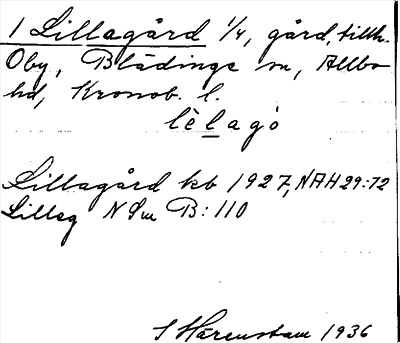 1 Lillagård 1/4, gård, tillh.
Oby, Blädinge sn, Allbo
hd, Kronob. l.
lèlagò
Lillagård kb 1927, NAH 29:72
Lilleg NSm B:110
S Härenstam 1936